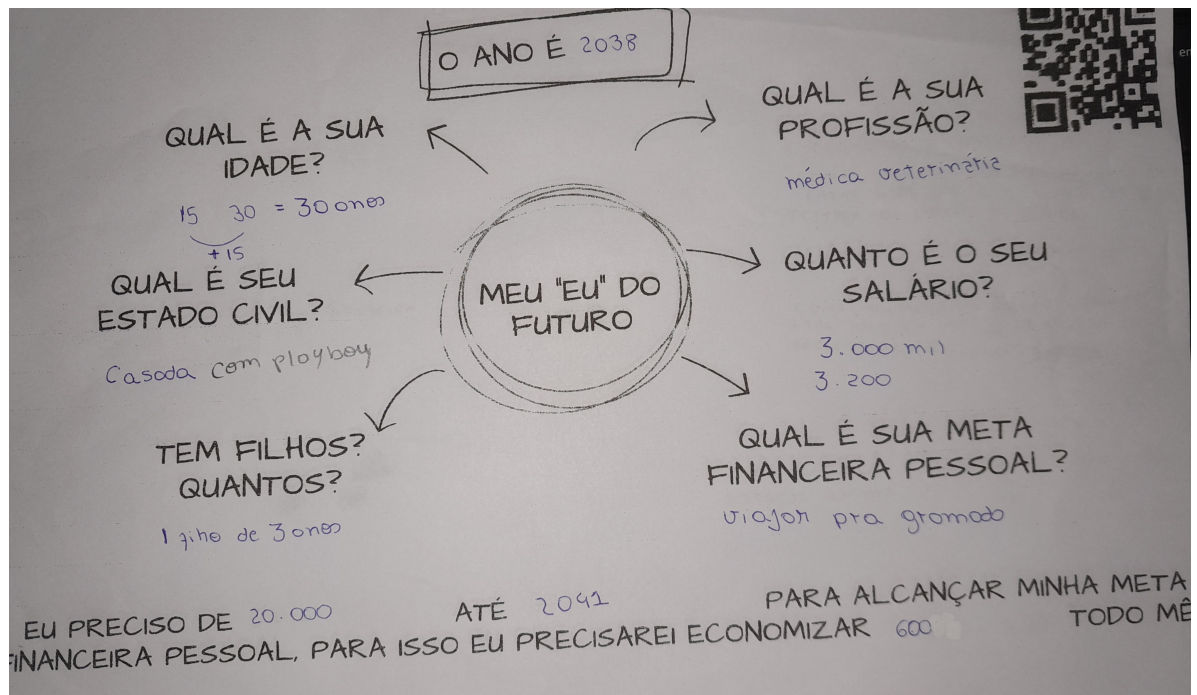 O ANO É 2038
QUAL É A SUA
IDADE?
15 30 = 30 anos
+15
QUAL É A SUA
PROFISSÃO?
médica veterinária
QUAL É SEU
ESTADO CIVIL?
Casada com playboy
MEU "EU" DO
FUTURO
QUANTO É O SEU
SALÁRIO?
3.000 mil
3.200
TEM FILHOS?
QUANTOS?
1 filho de 3 anos
QUAL É SUA META
FINANCEIRA PESSOAL?
viajar pra gramado
EU PRECISO DE 20.000 ATÉ 2041 PARA ALCANÇAR MINHA META
FINANCEIRA PESSOAL, PARA ISSO EU PRECISAREI ECONOMIZAR 600 TODO MÊ